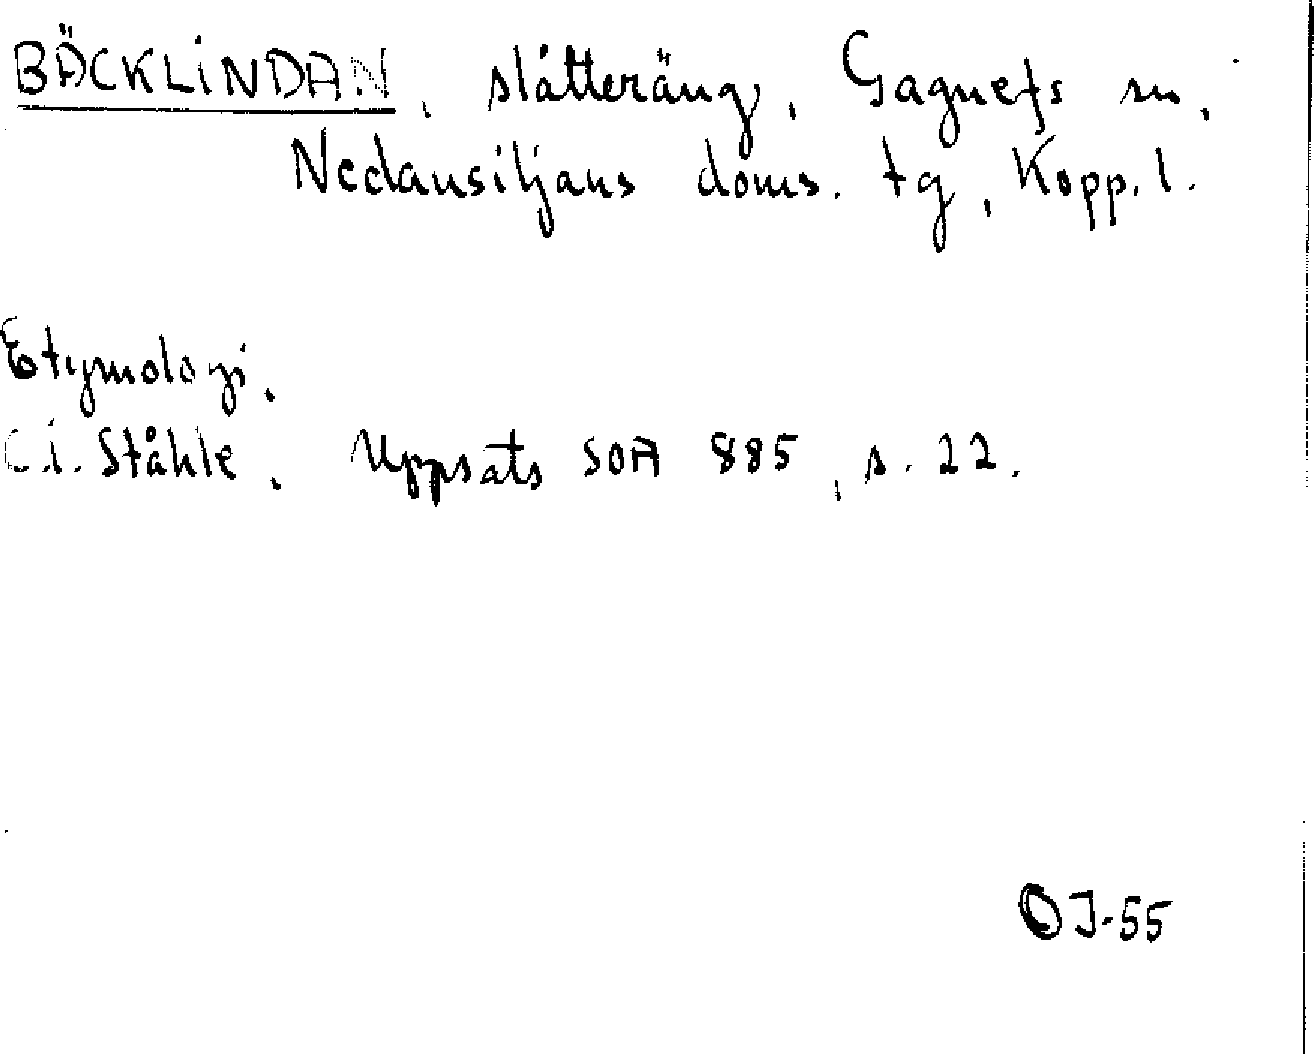 BÄCKLINDAN, slåtteräng, Gagnefs sn,
Nedansiljans doms. tg, Kopp. l.
Etymologi.
C.I. Ståhle. Uppsats SOA 885, s. 22.
OJ-55